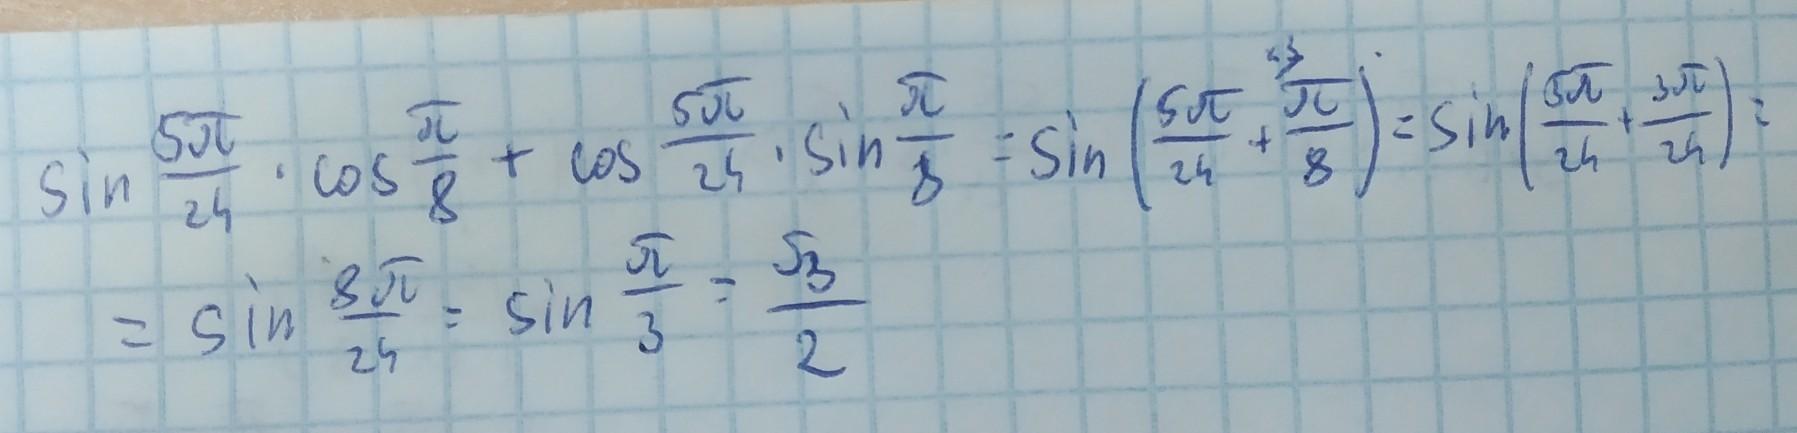 sin 5π/24 · cos π/8 + cos 5π/24 · sin π/8 = sin(5π/24 + π/8) = sin(5π/24 + 3π/24) =
= sin 8π/24 = sin π/3 = √3/2